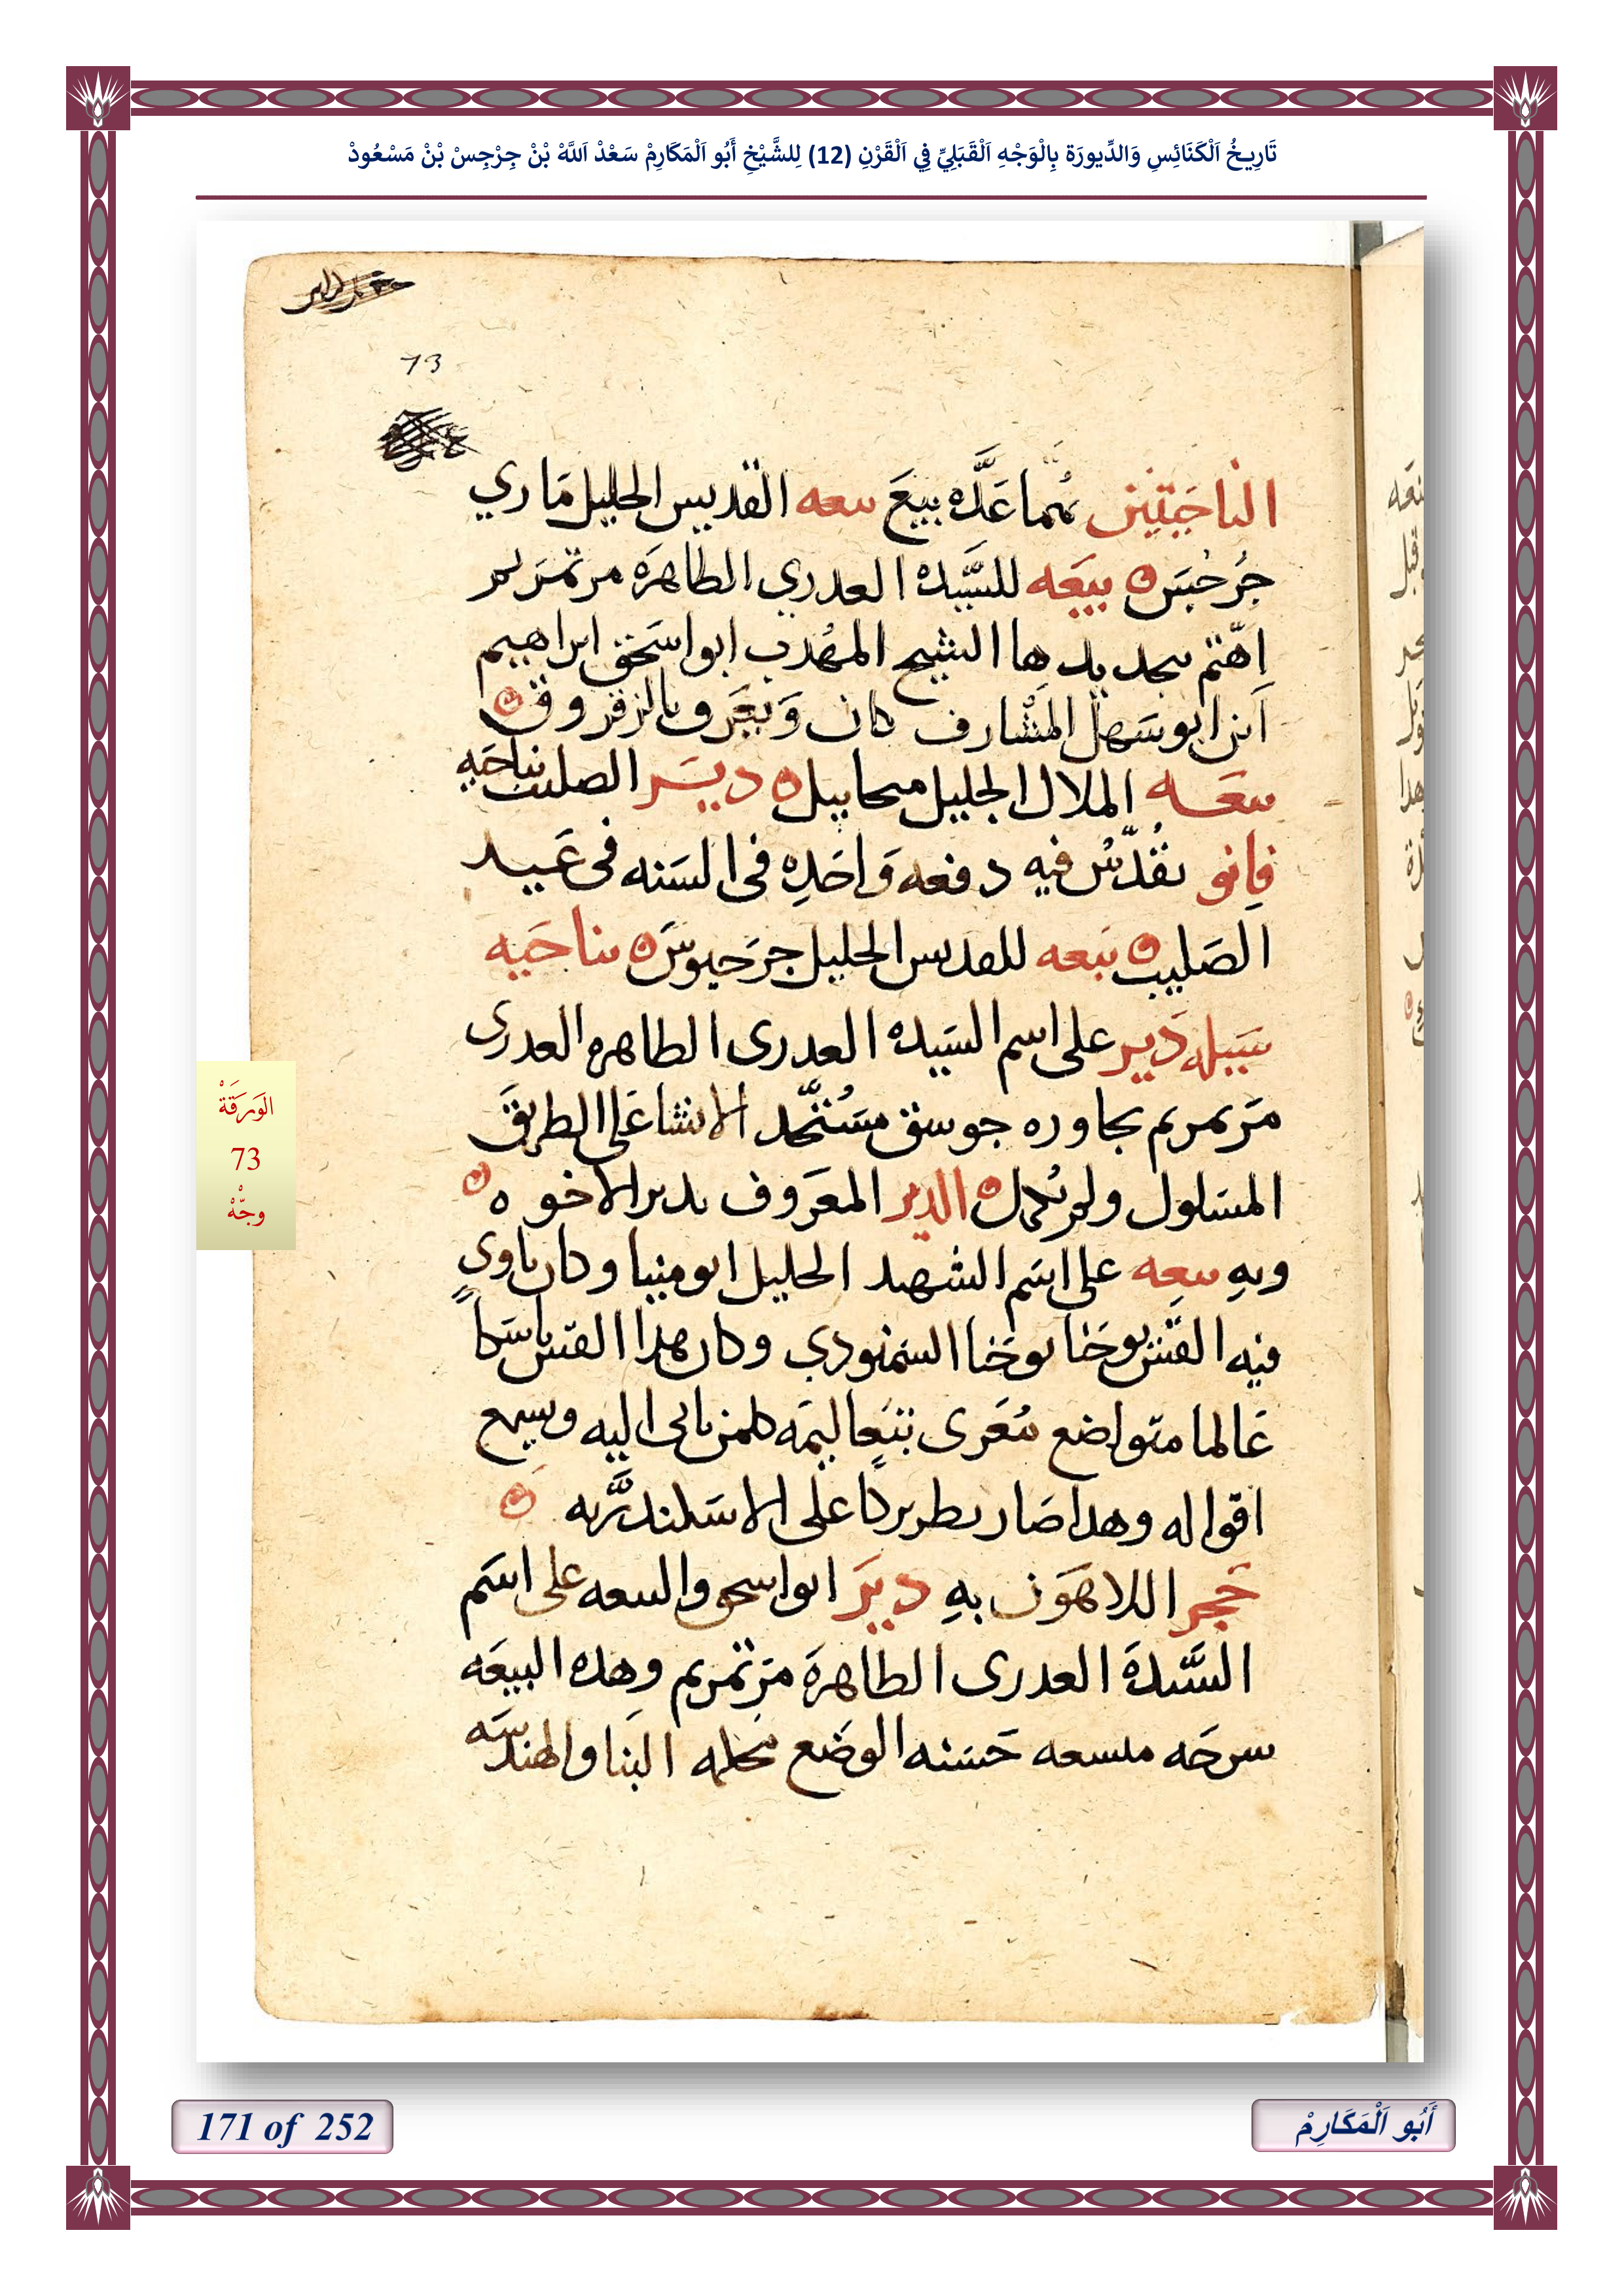 تَارِيخُ اَلْكَنَائِسِ وَالدِّيورَة بِالْوَجْهِ اَلْقَبَلِيِّ فِي اَلْقَرْنِ (12) لِلشَّيْخِ أَبُو اَلْمَكَارِمْ سَعْدْ اَللَّهْ بْنْ جِرْجِسْ بْنْ مَسْعُودْ
73
الناحيتين بهما عدّه بيع بيعه القديس الجليل ماري
جرجس ه بيعه للسيده العدري الطاهره مرتمريم
اهتم بتجديدها الشيخ المهدب ابو اسحق ابراهيم
ابن ابو سهل المشارف كان ويعرف بالزقروق
بيعه الملاك الجليل ميخاييل ه دير الصليب بناحيه
فانو يقدّس فيه دفعه واحده فى السنه فى عيد
الصليب ه بيعه للقديس الجليل جرجيوس ه بناحيه
سيله دير على اسم السيده العدرى الطاهره العدرى
مرتمريم يجاوره جوسق مستجد الانشا على الطريق
المسلوك ولم يكمل ه الدير المعروف بدير الاخوه ه
وبه بيعه على اسم الشهيد الجليل ابو مينا وكان ياوى
فيه القس يوحنا يوحنا السمنودي وكان هدا القس ناسكا
عالما متواضع مُعَرى بتعاليمه كلمن ياتى اليه ويسمع
اقواله وهدا صار بطريركا على الاسكندريه
حجر اللاهون به دير ابو اسحق والبيعه على اسم
السيدة العدرى الطاهرة مرتمريم وهده البيعه
سرحه متسعه حسنه الوضع محكمه البنا والهندسه
الوَرَقَةْ
73
وجّهْ
171 of 252
أَبُو اَلْمَكَارِمْ